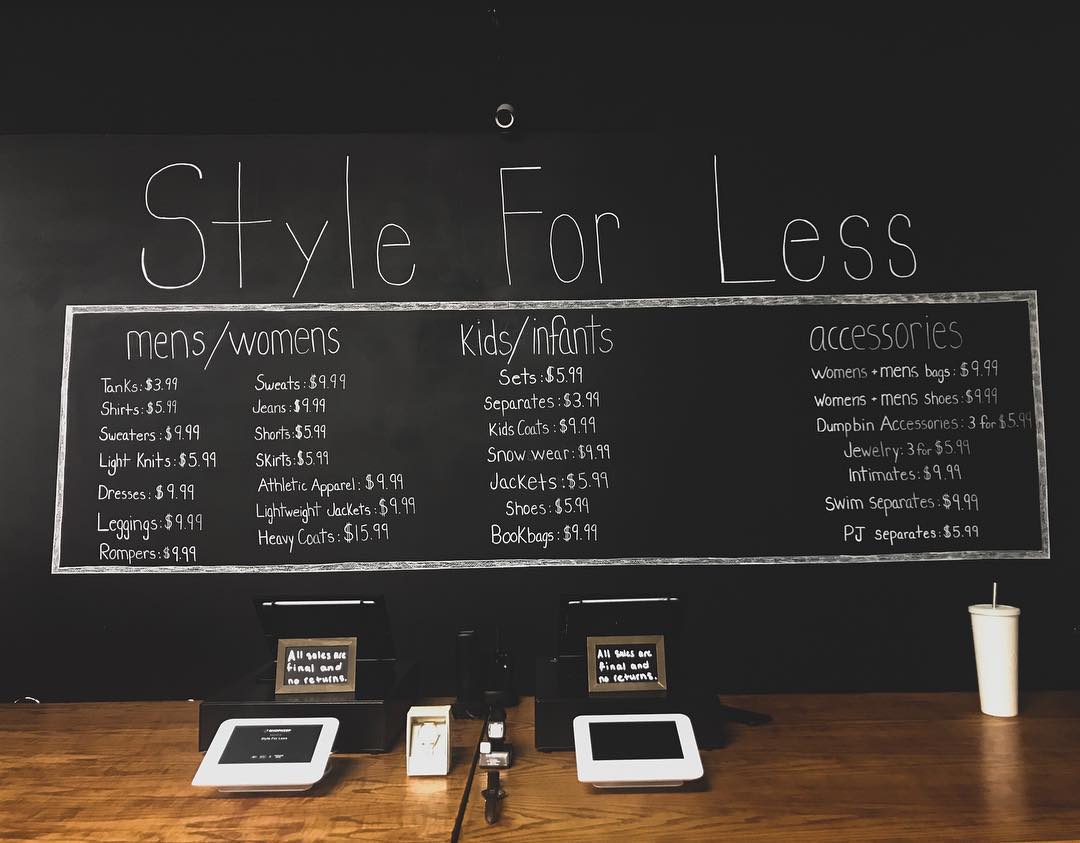 Style For Less
mens/womens
Tanks: $3.99
Shirts: $5.99
Sweaters: $9.99
Light Knits: $5.99
Dresses: $9.99
Leggings: $9.99
Rompers: $9.99
Sweats: $9.99
Jeans: $9.99
Shorts: $5.99
Skirts: $5.99
Athletic Apparel: $9.99
Lightweight Jackets: $9.99
Heavy Coats: $15.99
Kids/infants
Sets: $5.99
Separates: $3.99
Kids Coats: $9.99
Snow wear: $9.99
Jackets: $5.99
Shoes: $5.99
Bookbags: $9.99
accessories
Womens + mens bags: $9.99
Womens + mens shoes: $9.99
Dumpbin Accessories: 3 for $5.99
Jewelry: 3 for $5.99
Intimates: $9.99
Swim separates: $9.99
PJ separates: $5.99
All sales are
final and
no returns.
All sales are
final and
no returns.
Style For Less